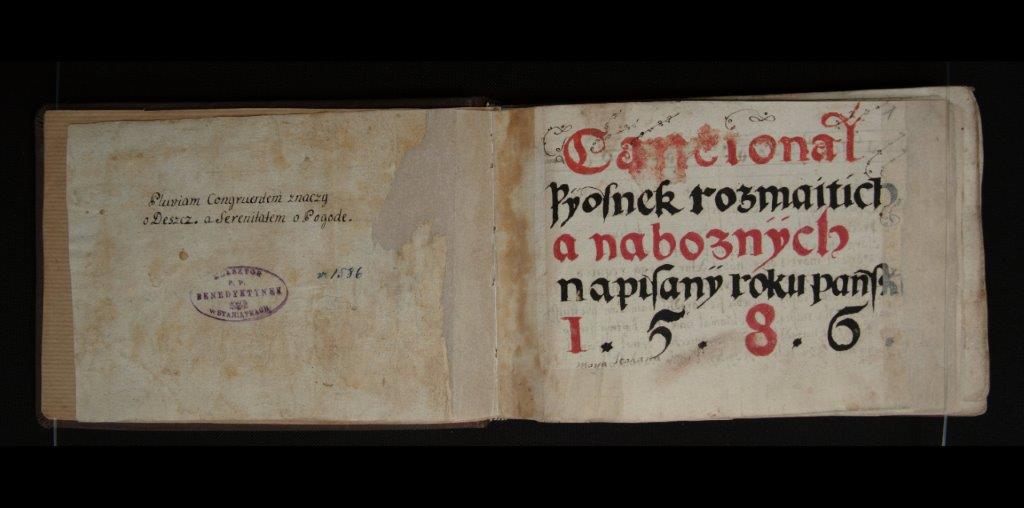 Pluviam Congruentem znaczy
o Deszcz. a Serenitatem o Pogode.
KLASZTOR
P. P.
BENEDYKTYNEK
W STANIĄTKACH
w 1586
1
Cancional
Pyosnek rozmaitich
a naboznÿch
napisanÿ roku pańſ
1 . 5 . 8 . 6 .